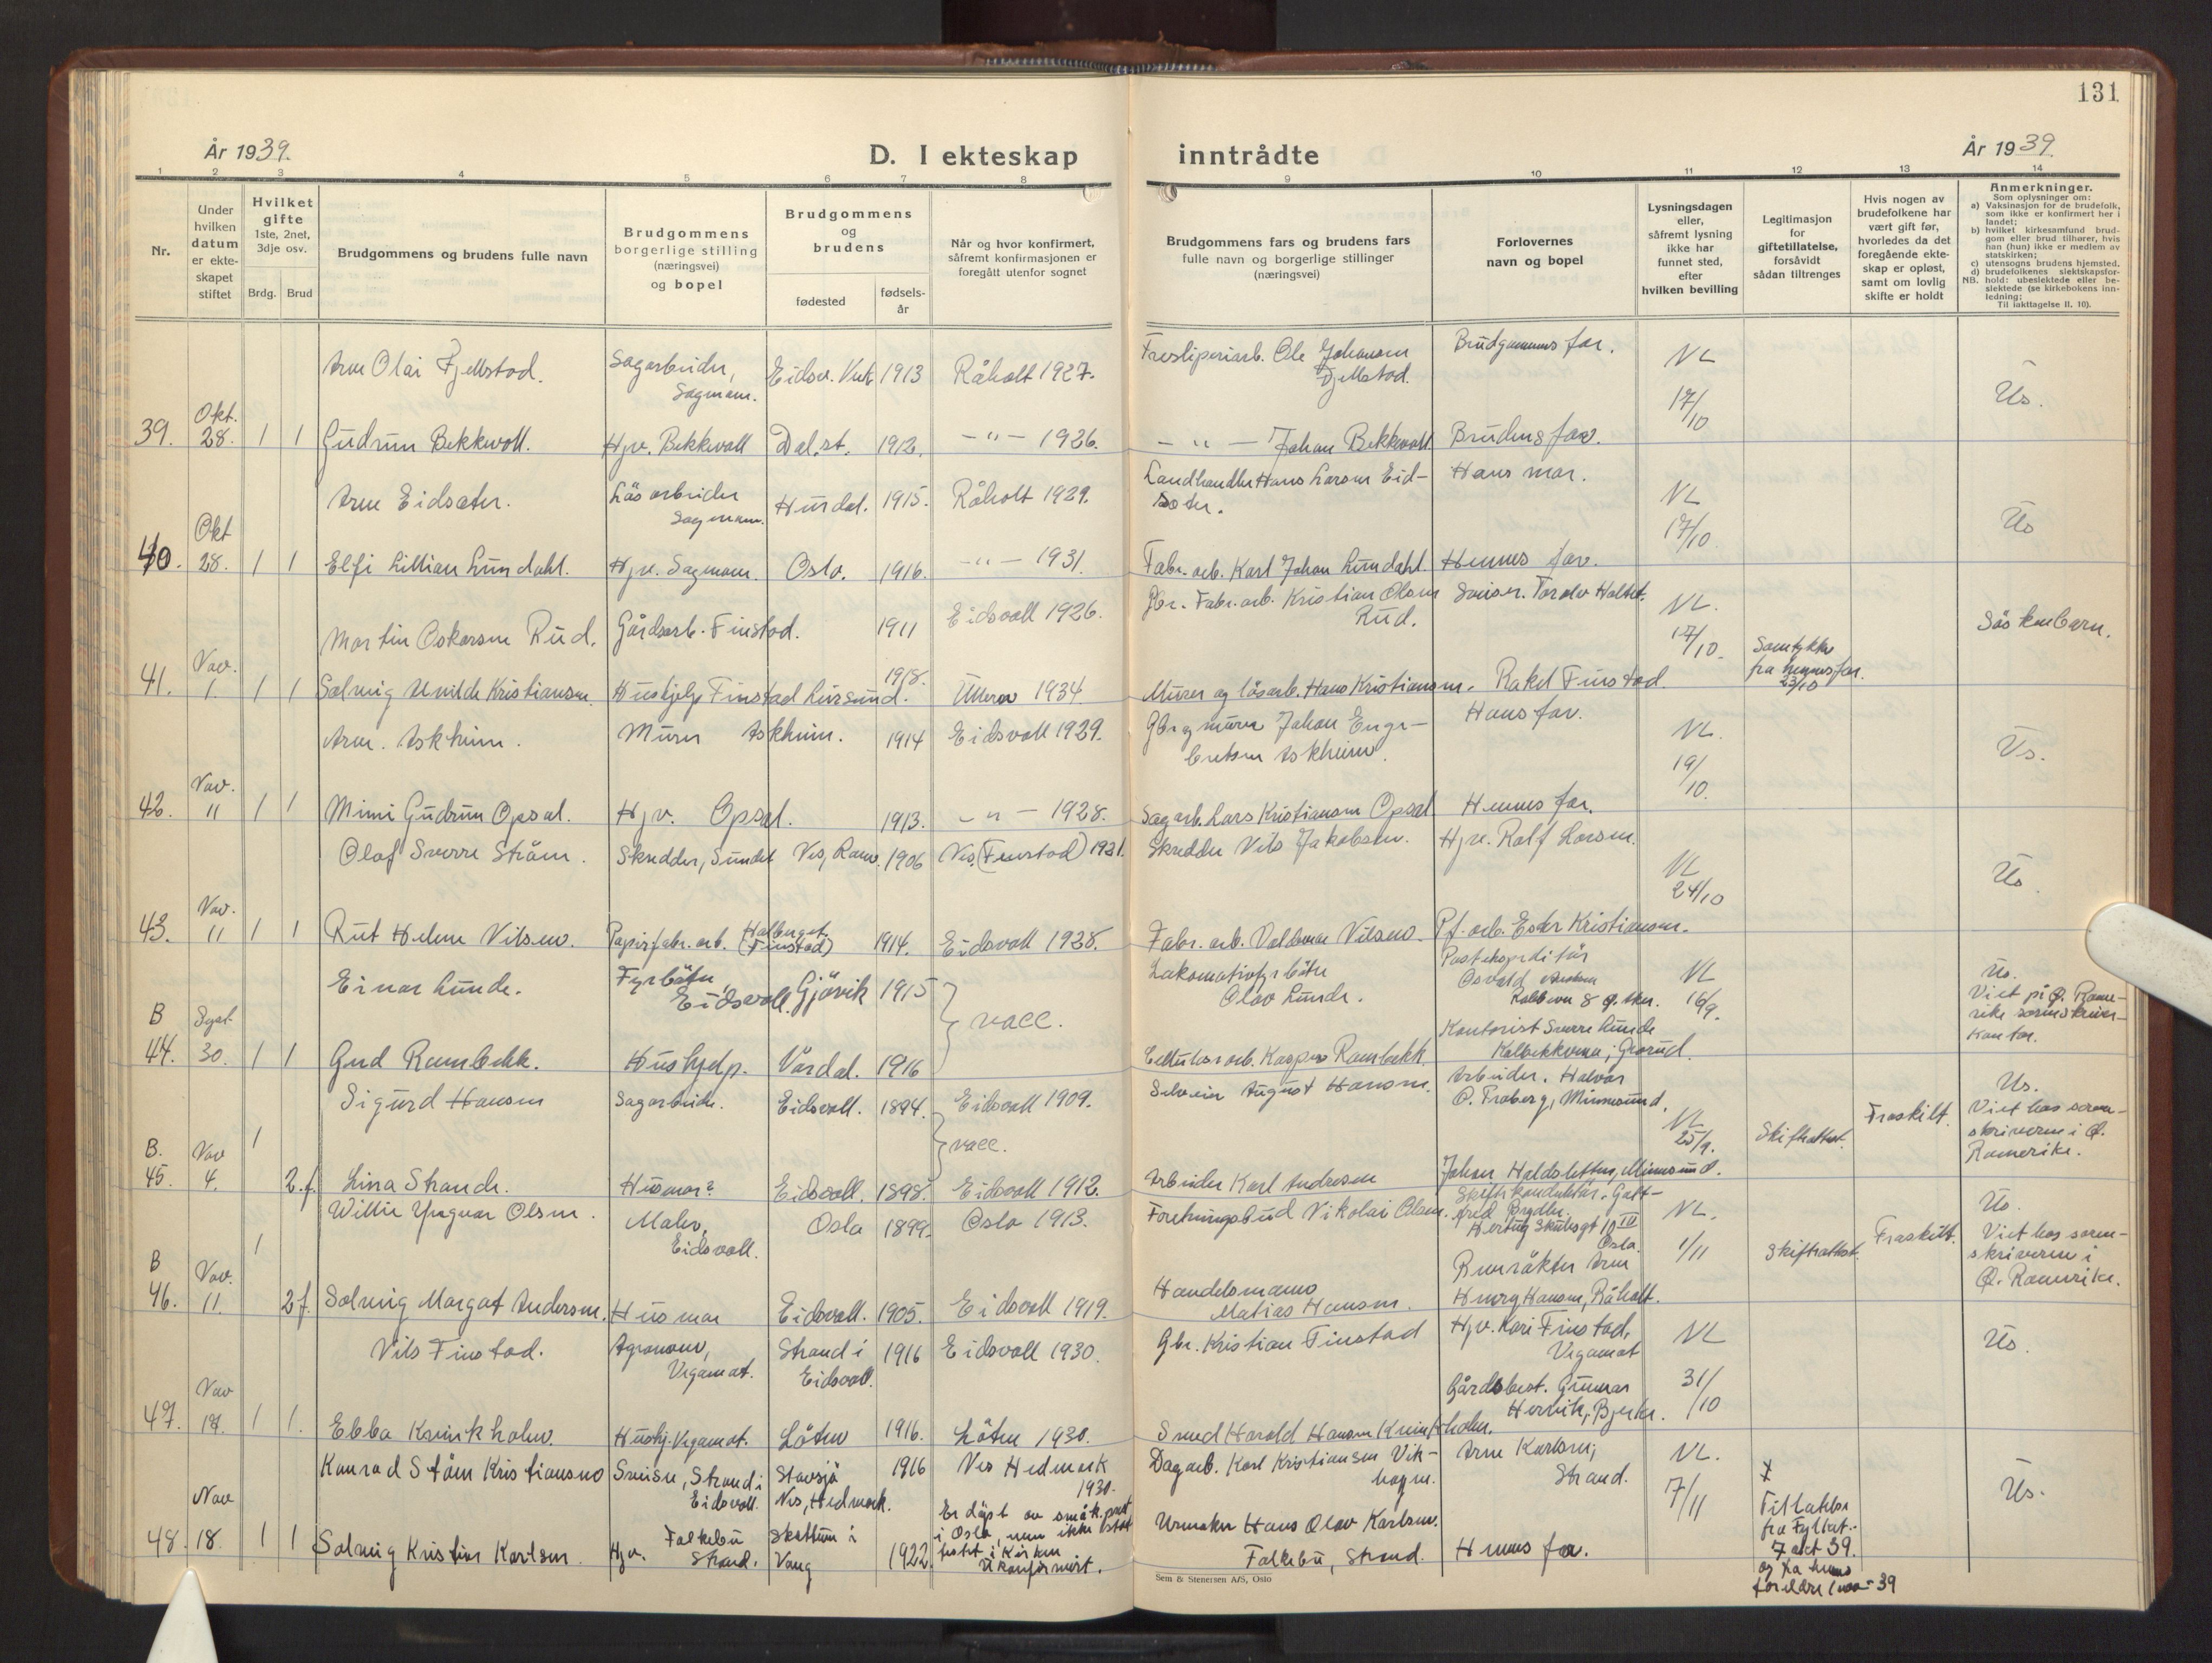 131
År 1939.
D. I ekteskap inntrådte
År 1939.
1 2 3 4 5 6 7 8 9 10 11 12 13 14
Nr.
Under hvilken datum er ekte-skapet stiftet
Hvilket gifte 1ste, 2net, 3dje osv.
Brdg. Brud
Brudgommens og brudens fulle navn
Brudgommens borgerlige stilling (næringsvei) og bopel
Brudgommens og brudens
fødested
fødsels-år
Når og hvor konfirmert, såfremt konfirmasjonen er foregått utenfor sognet
Brudgommens fars og brudens fars fulle navn og borgerlige stillinger (næringsvei)
Forlovernes navn og bopel
Lysningsdagen eller, såfremt lysning ikke har funnet sted, efter hvilken bevilling
Legitimasjon for giftetillatelse, forsåvidt sådan tiltrenges
Hvis nogen av brudefolkene har vært gift før, hvorledes da det foregående ekte-skap er opløst, samt om lovlig skifte er holdt
Anmerkninger.
Som oplysninger om:
a) Vaksinasjon for de brudefolk, som ikke er konfirmert her i landet;
b) hvilket kirkesamfund brud-gom eller brud tilhører, hvis han (hun) ikke er medlem av statskirken;
c) utensogns brudens hjemsted.
d) brudefolkenes slektskapsfor-
NB. hold: ubeslektede eller be-slektede (se kirkebokens inn-ledning;
Til iakttagelse II. 10).
Arne Olai Fjellstad. Sagarbeider, Sagmoen. Eidsv. Verk 1913 Råholt 1927. Tresliperiarb. Ole Johansen Fjellstad. Brudgommens far. NL 17/10 Us.
39. Okt. 28. 1 1 Gudrun Bekkevoll. Hjv. Bekkevoll Dal st. 1912. -"- 1926. -"- Johan Bekkevoll Brudens far.
Arne Eidsæter. Løsarbeider Sagmoen. Hurdal. 1915. Råholt 1929. Landhandler Hans Larsen Eidsæter. Hans mor. NL 17/10. Us
40. Okt 28. 1 1 Elfi Lillian Lundahl. Hjv. Sagmoen. Oslo. 1916. -"- 1931. Fabr. arb. Karl Johan Lundahl Hennes far.
Martin Oskarsen Rud. Gårdsarb. Finstad. 1911 Eidsvoll 1926. Gbr. Fabr. arb. Kristian Olsen Rud. Sveiser. Toralv Holtet. NL. 17/10. Søskenbarn.
41. Nov. 1. 1 1 Solveig Unilde Kristiansen. Hushjelp Finstad Lursund. 1918. Ullern 1934. Murer og løsarb. Hans Kristiansen. Rakel Finstad. Samtykke fra hennes far. 23/10
Arne. Askheim. Murer Askheim. 1914 Eidsvoll 1929. Gbr og murer Johan Engebretsen Askheim. Hans far. NL. 19/10. Us.
42. Nov. 11 1 1 Mimi Gudrun Opsal. Hjv. Opsal. 1913. -"- 1928. Sagarb. Lars Kristiansen Opsal Hennes far.
Olaf Sverre Strøm. Skredder, Sundet Nes, Rom. 1906 Nes. (Fenstad) 1921. Skredder Nils Jakobsen. Hjv. Ralf Larsen. NL 24/10 Us.
43. Nov. 11 1 1 Rut Helene Nilsen. Papirfabr. arb. (Finstad) 1914. Eidsvoll 1928. Fabr. arb. Valdemar Nilsen. Pf. arb. Ester Kristiansen.
Einar Lunde. Fyrbøter, Eidsvoll. Gjøvik 1915 vacc. Lokomotivfyrbøter Olav Lunde. Postekspeditør Osvald 8 Ø. Aker. NL 16/9. Us. Viet på Ø. Romerike sorenskriverkontor.
B 44. Sept. 30. 1 1 Gud Rambekk. Hushjelp. Vardal. 1916 Cellulosearb. Kaspar Rambekk Kontorist Sverre Lunde Kalbakkveien, Grorud.
Sigurd Hansen Sagarbeider. Eidsvoll. 1894. Eidsvoll 1909. vacc. Selveier August Hansen. Arbeider. Halvor O. Fraberg, Minnesund. NL 25/9. Skifteattest. Fraskilt. Us. Viet hos sorenskriveren i Ø. Romerike.
B. 45. Nov 4. 1 2.f. Lina Strande. Husmor? Eidsvoll. 1898. Eidsvoll 1912. Arbeider Karl Andresen Johan Haldsletten, Minnesund.
Willie Yngvar Olsen. Maler, Eidsvoll. Oslo 1899. Oslo 1913. Forretningsbud Nikolai Olsen. Skiftekonduktør. Gottfred Brydler. Hertug Skulesgt 10 III Oslo. NL. 1/11 Skifteattest. Fraskilt. Us. Viet hos sorenskriveren i Ø. Romerike.
B 46. Nov. 11. 1 2f. Solveig Margot Andersen. Husmor Eidsvoll. 1905. Eidsvoll 1919. Handelsmann Matias Hansen. Revrøkter Arne Hansen, Råholt.
Nils Finstad. Agronom, Vegamot. Strand i Eidsvoll. 1916 Eidsvoll 1930. Gbr. Kristian Finstad Hjv. Kari Finstad, Vegamot NL 31/10 Us.
47. Nov 18. 1 1. Ebba Kvernkholm. Hushj. Vegamot. Løten 1916. Løten 1930. Smed Harald Hansen Gårdsbest. Gunnar Hervik, Bjerke.
Konrad Støen Kristiansen Sveiser, Strand i Eidsvoll. Stavsjø Nes, Hedmark. 1916 Nes Hedmark 1930. Dagarb. Karl Kristiansen Vikhagen. Arne Karlsen, Strand. NL. 7/11 Us.
48. Nov 18. 1 1 Solveig Kristine Karlsen. Hjv. Falkebu Strand. Skattum i Vang 1922. Er døpt av småk. prest i Oslo, men ikke stadfestet i kirken Ukonfirmert. Urmaker Hans Olav Karlsen. Falkebu, Strand. Hennes far. X Tillatelse fra Fylket. 7 okt 39. og fra hennes foreldre 1 nov - 39
Sem & Stenersen A/S, Oslo